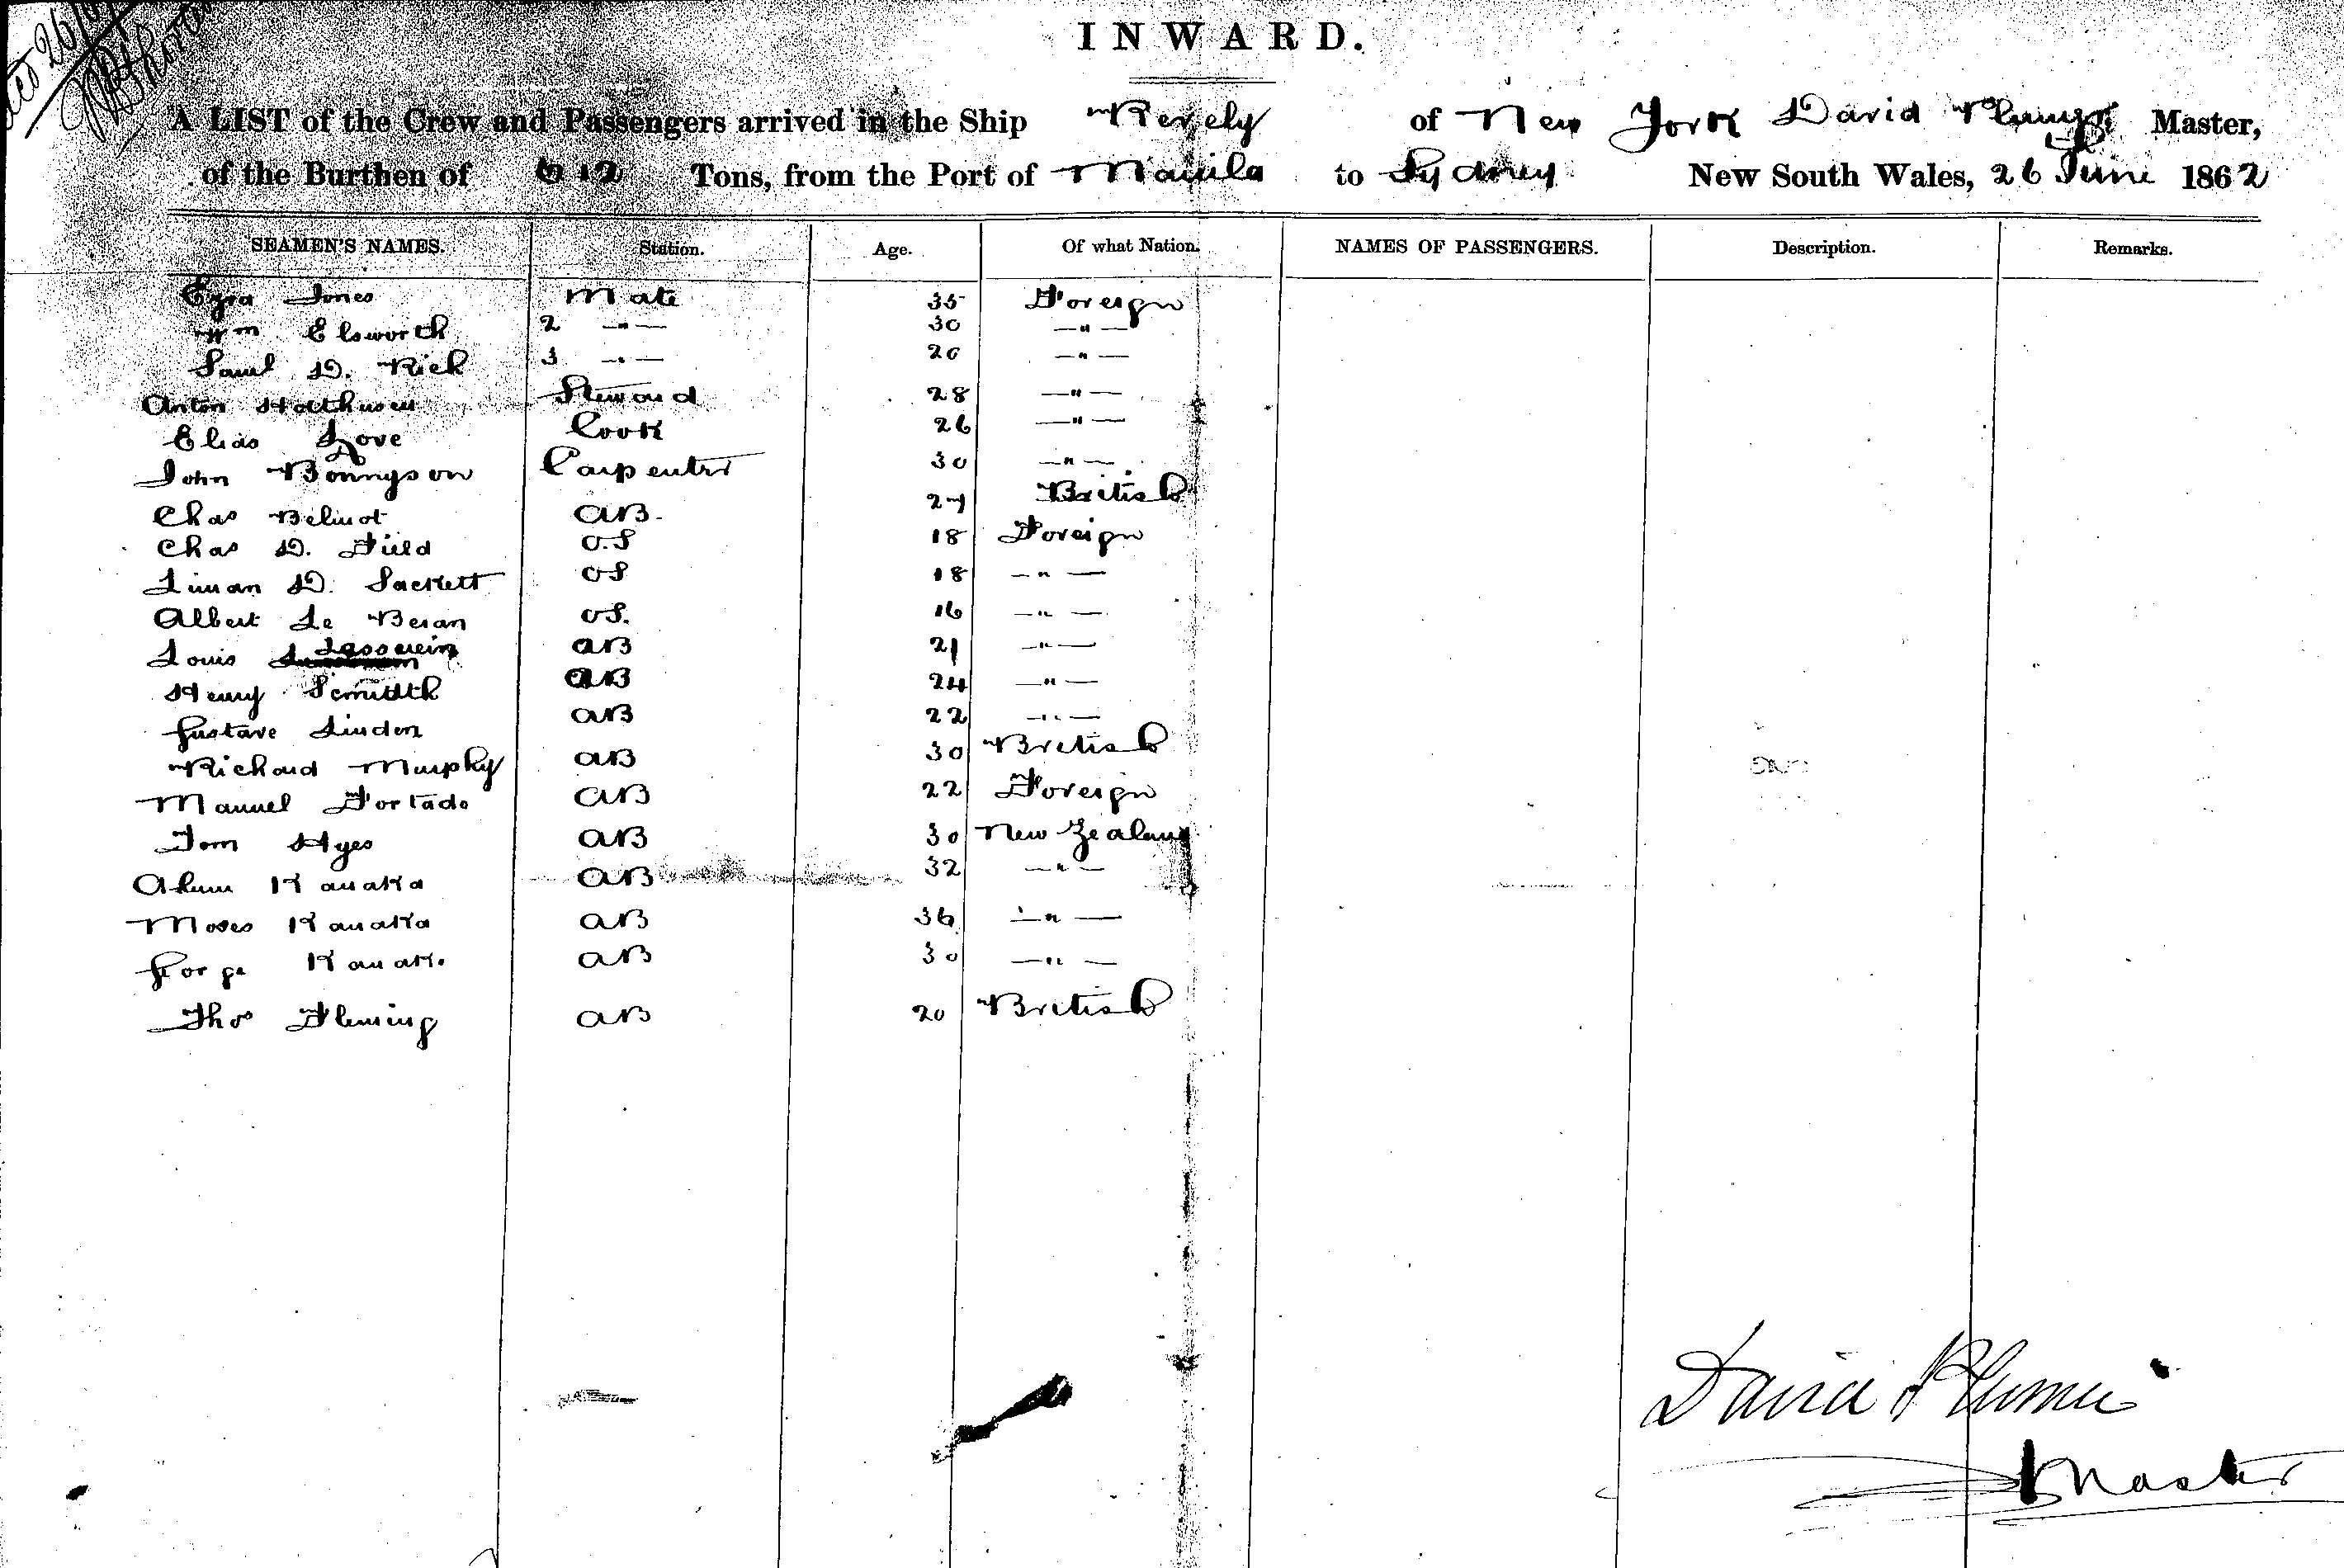 INWARD.
A LIST of the Crew and Passengers arrived in the Ship Revely of New York David Master,
of the Burthen of 612 Tons, from the Port of Manila to Sydney New South Wales, 26 June 1862
SEAMEN'S NAMES. Station. Age. Of what Nation. NAMES OF PASSENGERS. Description. Remarks.
Ezra Jones Mate 35 Foreign
Wm Elsworth 2 —"— 30 —"—
Saml D. Rich 3 —"— 20 —"—
Anton Holthusen Steward 28 —"—
Elias Love Cook 26 —"—
John Bonnyson Carpenter 30 —"—
Chas Belmot AB. 27 British
Chas D. Field O.S 18 Foreign
Liman D. Sackett OS 18 —"—
Albert Le Beran OS. 16 —"—
Louis AB 21 —"—
Henry Scmidth AB 24 —"—
Gustave Linden AB 22 —"—
Richard Murphy AB 30 British
Manuel Fortado AB 22 Foreign
Tom Hyes AB 30 New Zealand
Kanaka AB 32 —"—
Moses Kanaka AB 36 —"—
Gorge Kanaka AB 30 —"—
Thos Fleming AB 20 British
David
Master